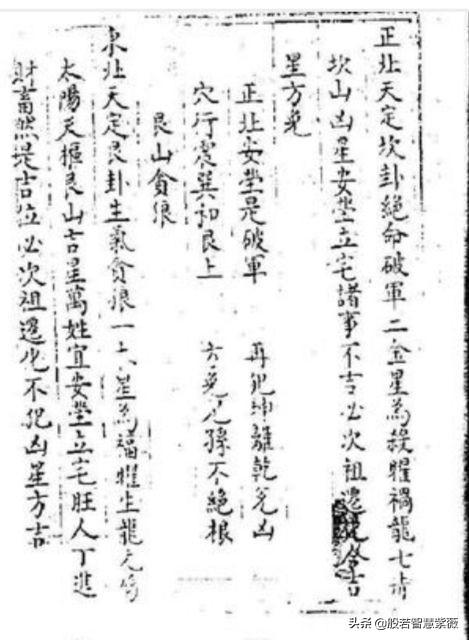 正北天定坎卦絕命破軍二金星為殺曜禍龍七赤
坎山凶星安塋立宅諸事不吉必次祖遷合吉
星方免
正北安塋是破軍　再犯坤離乾兌凶
穴行震巽和艮上　方免児孫不絕根
艮山貪狼
東北天定艮卦生氣貪狼一木星為福曜生龍九
太陽天樞艮山吉星萬姓宜安塋立宅旺人丁進
財畜然是吉位必次祖遷化不犯凶星方吉
头条 @般若智慧紫薇